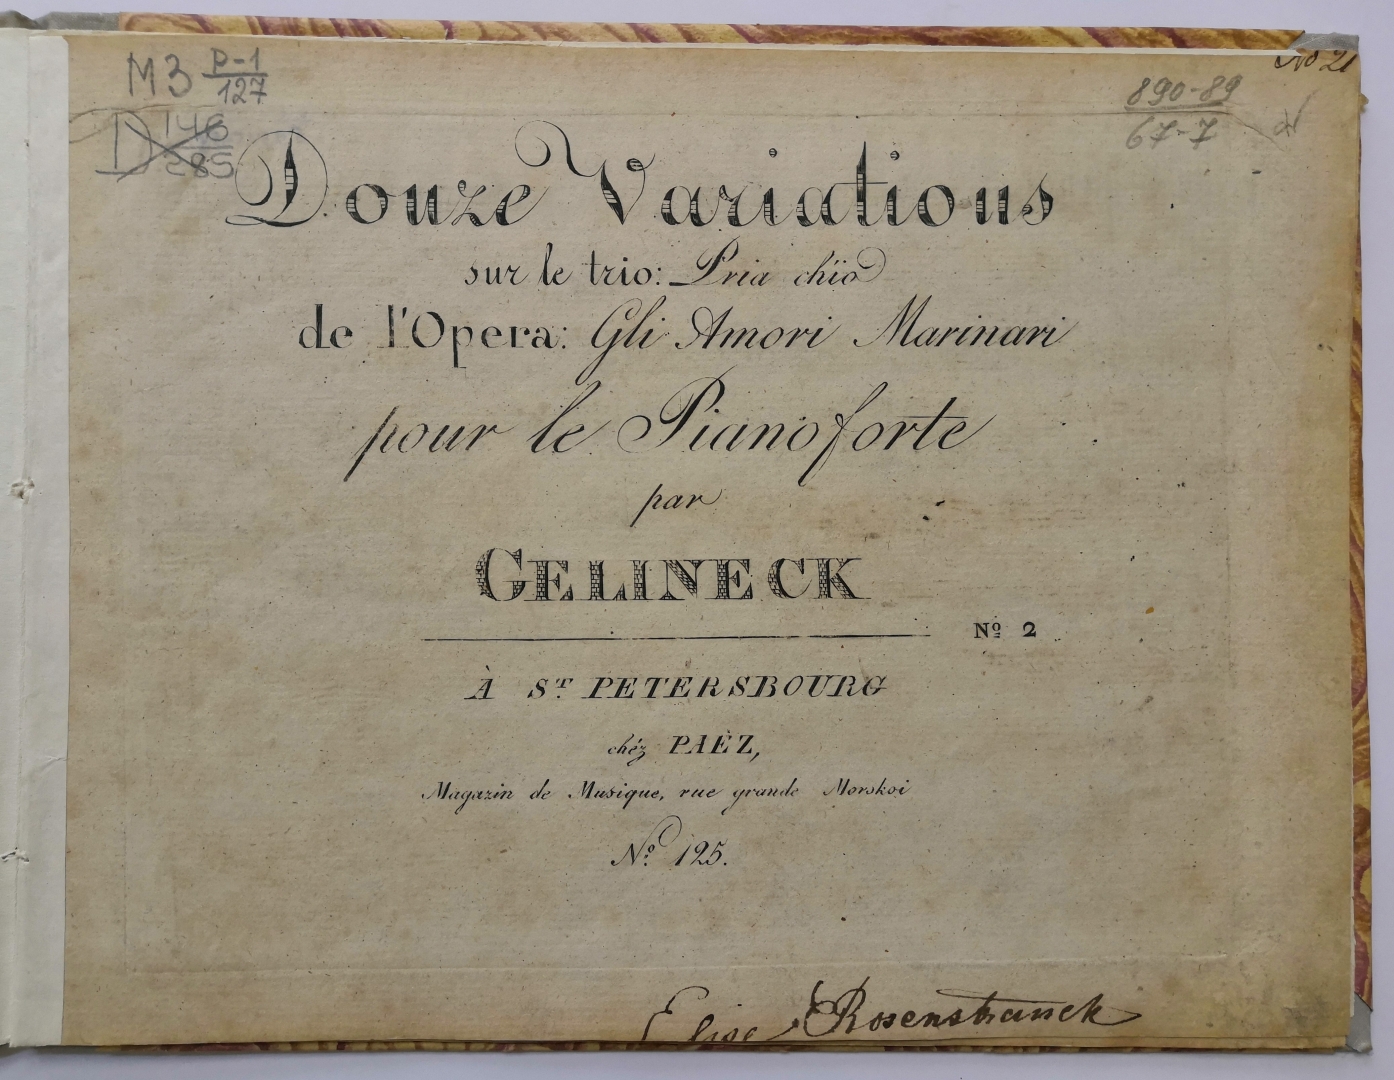 M3 P-1
127
D 146
285
No 21
890-89
67-7
Douze Variations
sur le trio: Pria chïo
de l'Opera: Gli Amori Marinari
pour le Pianoforte
par
GELINECK
Nº 2
À ST. PETERSBOURG
chéz PAËZ,
Magazin de Musique, rue grande Morskoi
Nº 125.
Elise Rosenstrauch